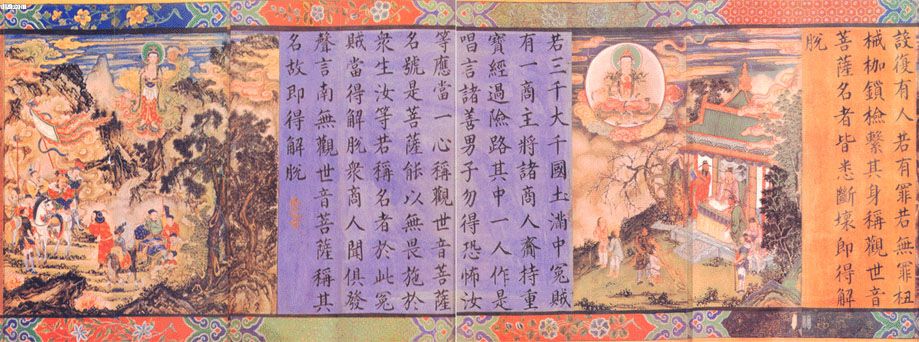 設復有人若有罪若無罪杻
械枷鎖檢繫其身稱觀世音
菩薩名者皆悉斷壞即得解
脫
若三千大千國土滿中冤賊
有一商主將諸商人齎持重
寶經過險路其中一人作是
唱言諸善男子勿得恐怖汝
等應當一心稱觀世音菩薩
名號是菩薩能以無畏施於
衆生汝等若稱名者於此冤
賊當得解脫衆商人聞俱發
聲言南無觀世音菩薩稱其
名故即得解脫